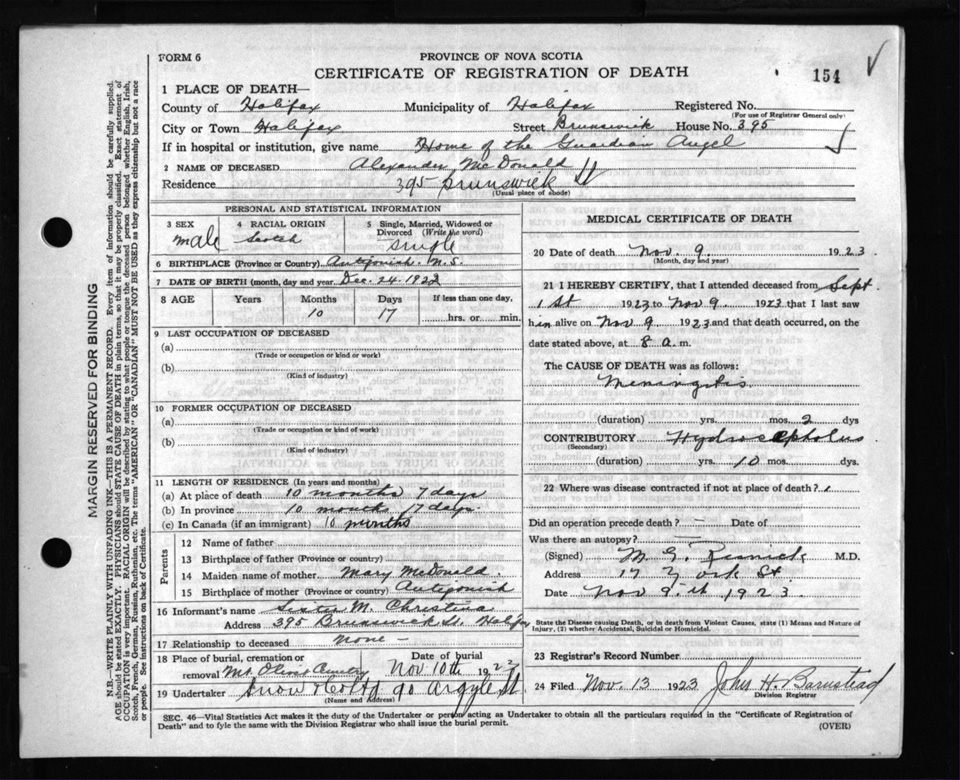 FORM 6
PROVINCE OF NOVA SCOTIA
CERTIFICATE OF REGISTRATION OF DEATH
154
1 PLACE OF DEATH—
County of Halifax Municipality of Halifax Registered No.
(For use of Registrar General only)
City or Town Halifax Street Brunswick House No. 395
If in hospital or institution, give name Home of the Guardian Angel
2 NAME OF DECEASED Alexander McDonald
Residence 395 Brunswick St
(Usual place of abode)
PERSONAL AND STATISTICAL INFORMATION
3 SEX 4 RACIAL ORIGIN 5 Single, Married, Widowed or Divorced (Write the word)
male Scotch single
6 BIRTHPLACE (Province or Country) Antigonish N.S.
7 DATE OF BIRTH (month, day and year) Dec. 24. 1922
8 AGE Years Months Days If less than one day,
10 17 hrs. or min.
9 LAST OCCUPATION OF DECEASED
(a)
(Trade or occupation or kind or work)
(b)
(Kind of industry)
10 FORMER OCCUPATION OF DECEASED
(a)
(Trade or occupation or kind of work)
(b)
(Kind of industry)
11 LENGTH OF RESIDENCE (In years and months)
(a) At place of death 10 months 7 days
(b) In province 10 months 17 days
(c) In Canada (if an immigrant) 10 months
Parents
12 Name of father
13 Birthplace of father (Province or country)
14 Maiden name of mother Mary McDonald
15 Birthplace of mother (Province or country) Antigonish
16 Informant's name Sister M. Christina
Address 395 Brunswick St. Halifax
17 Relationship to deceased None –
18 Place of burial, cremation or removal Date of burial
Mt. Olivet Nov 10th 192
19 Undertaker Snow & Co Ltd 90 Argyle St
(Name and Address)
MEDICAL CERTIFICATE OF DEATH
20 Date of death Nov. 9. 1923
(Month, day and year)
21 I HEREBY CERTIFY, that I attended deceased from Sept.
1st 1923 to Nov 9 1923 that I last saw
him alive on Nov 9 1923 and that death occurred, on the
date stated above, at 8 a. m.
The CAUSE OF DEATH was as follows:
Meningitis
(duration) yrs. mos. 2 dys
CONTRIBUTORY Hydrocepholus
(Secondary)
(duration) yrs. 10 mos. dys.
22 Where was disease contracted if not at place of death?
Did an operation precede death? – Date of
Was there an autopsy? –
(Signed) M.D.
Address 17 York St
Date Nov 9.th 1923
State the Disease causing Death, or in death from Violent Causes, state (1) Means and Nature of
Injury, (2) whether Accidental, Suicidal or Homicidal.
23 Registrar's Record Number
24 Filed Nov. 13 1923 John H. Barnstead
Division Registrar
SEC. 46—Vital Statistics Act makes it the duty of the Undertaker or person acting as Undertaker to obtain all the particulars required in the "Certificate of Registration of
Death" and to fyle the same with the Division Registrar who shall issue the burial permit.
(OVER)
MARGIN RESERVED FOR BINDING
N.B.—WRITE PLAINLY WITH UNFADING INK—THIS IS A PERMANENT RECORD. Every item of information should be carefully supplied.
AGE should be stated EXACTLY. PHYSICIANS should STATE CAUSE OF DEATH in plain terms, so that it may be properly classified. Exact statement of
OCCUPATION is very important. RACIAL ORIGIN will be described by stating to what people or tongue the deceased person belonged whether English, Irish,
Scotch, French, German, Russian, Ruthenian, etc. The terms "AMERICAN" OR "CANADIAN" MUST NOT BE USED as they express citizenship but not a race
or people. See instructions on back of Certificate.